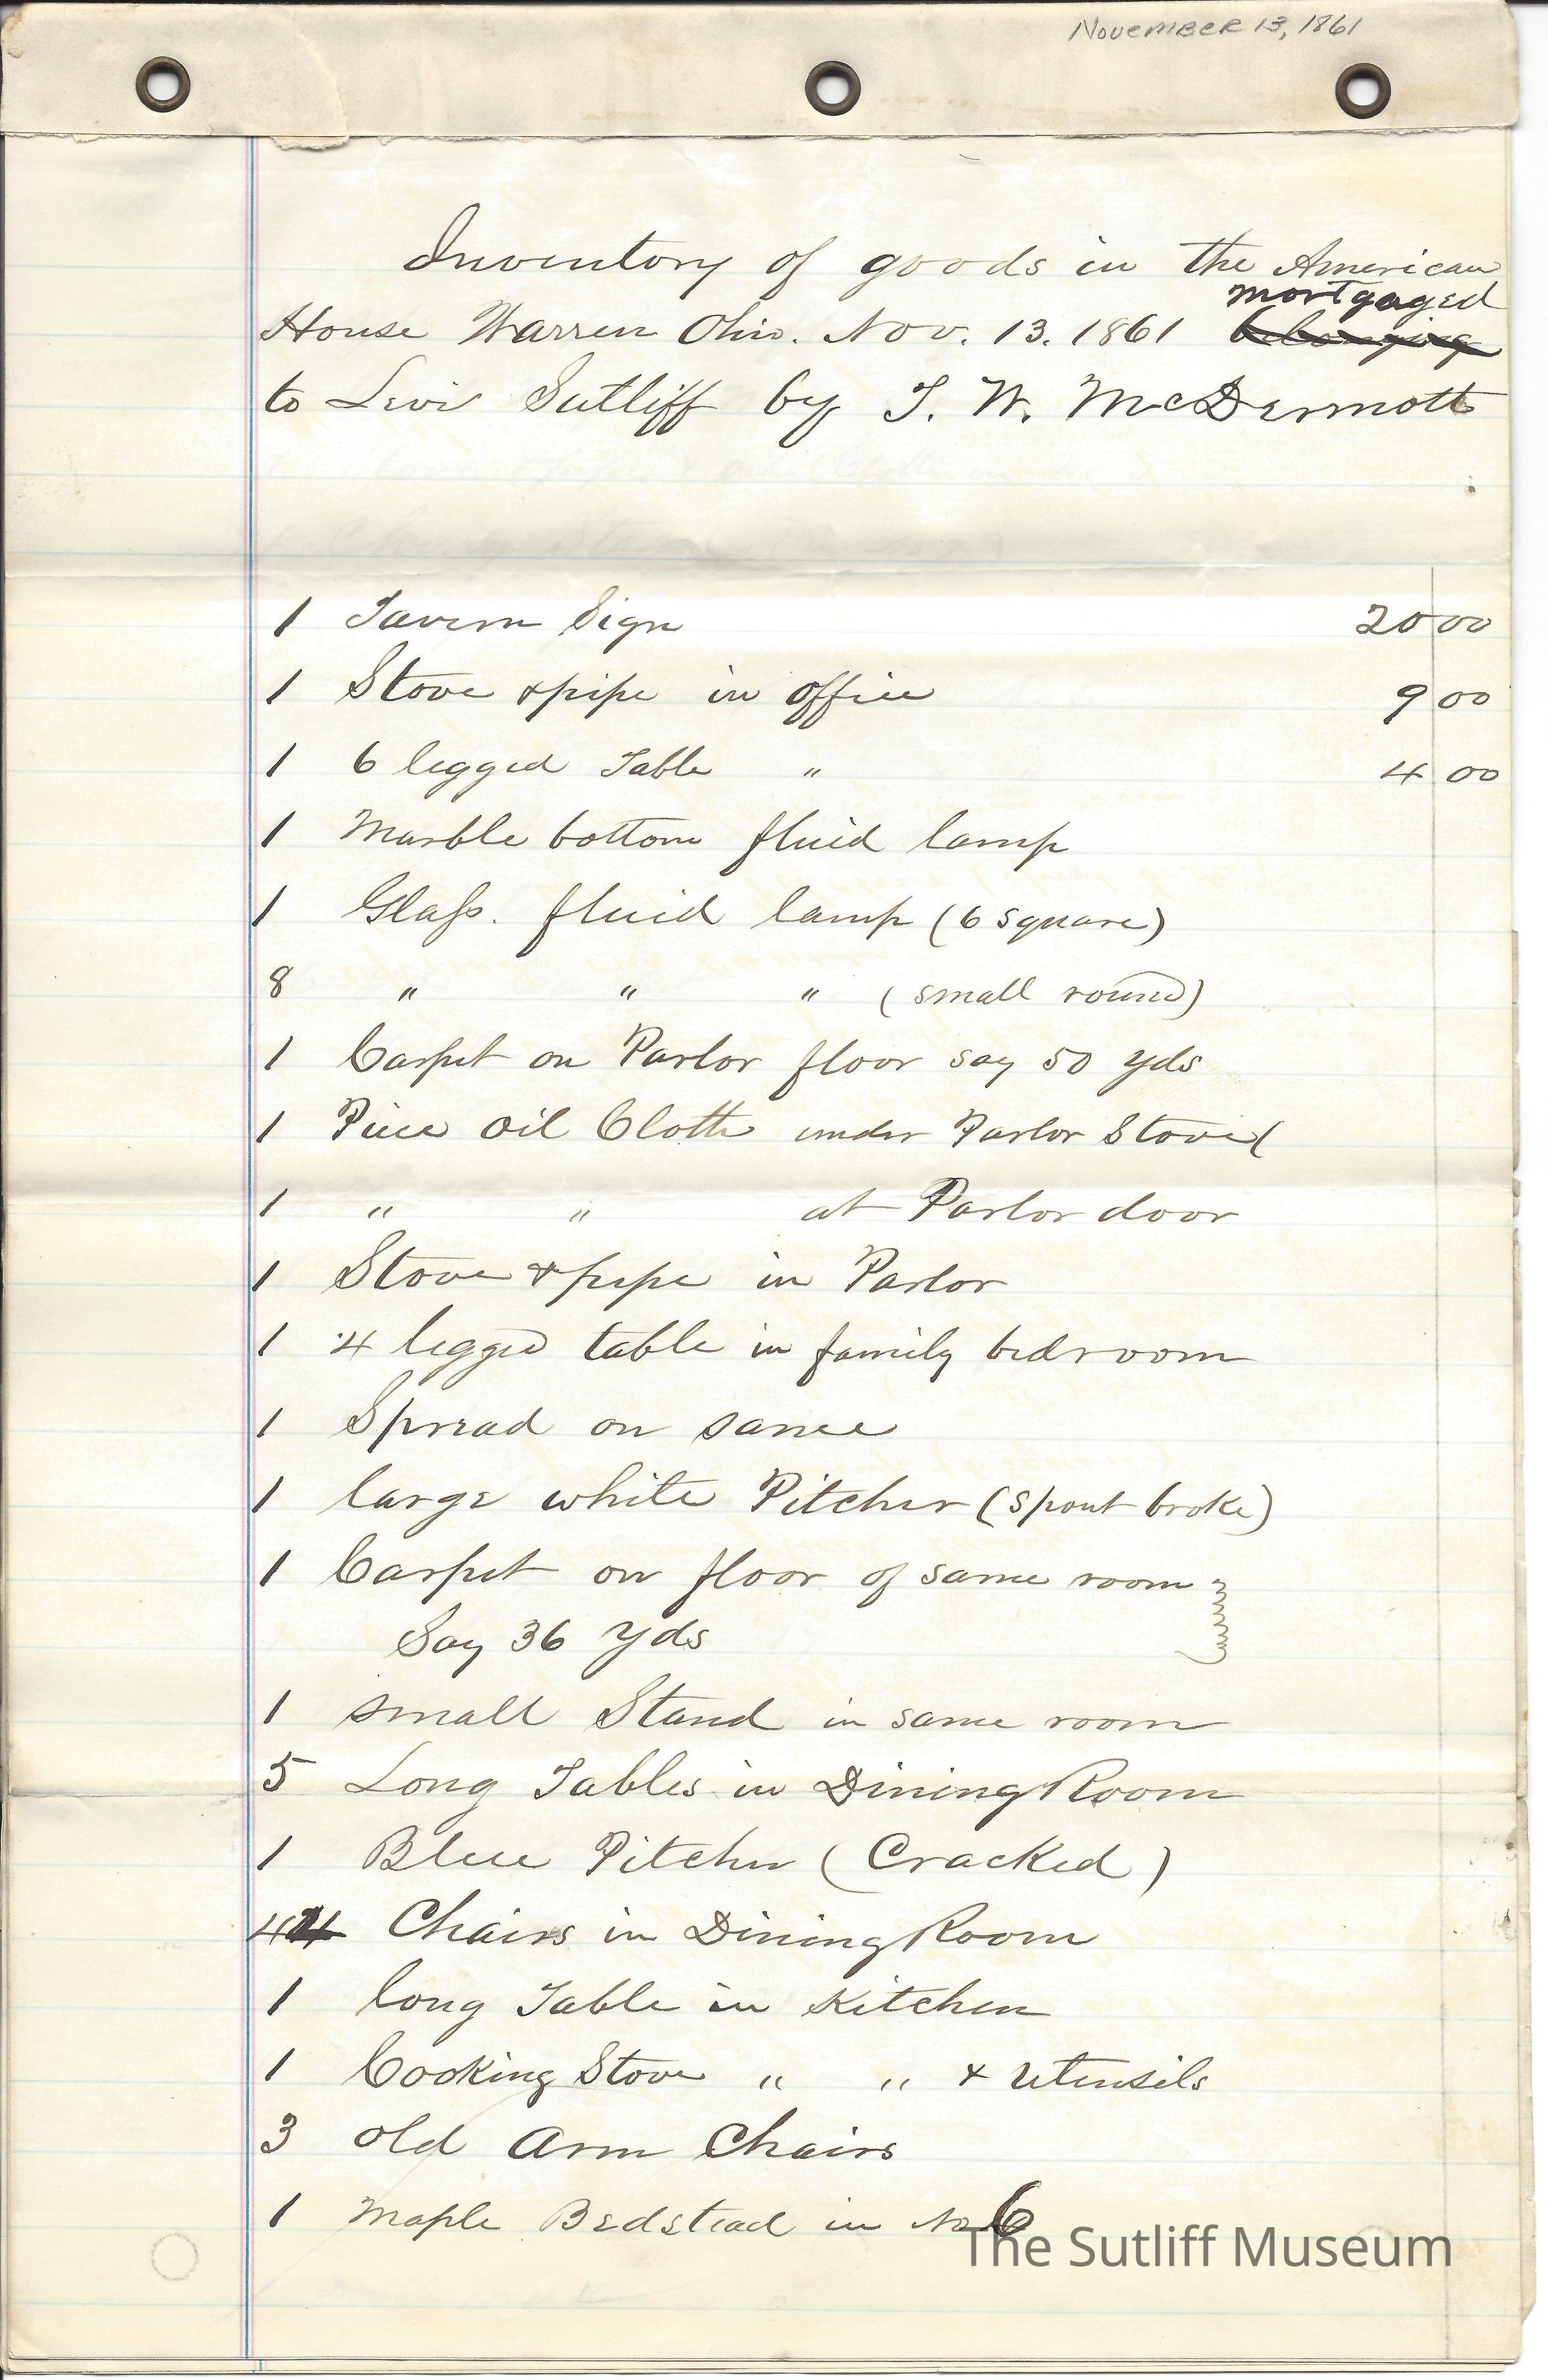 November 13, 1861
Inventory of goods in the American
mortgaged
House Warren Ohio. Nov. 13. 1861 belonging
to Levi Sutliff by T. W. McDermott
1 Tavern Sign 20 00
1 Stove & pipe in office 9 00
1 6 legged Table " 4 00
1 Marble bottom fluid lamp
1 Glass. fluid lamp (6 square)
8 " " " (small round)
1 Carpet on Parlor floor say 50 yds
1 Piece Oil Cloth under Parlor Stove
1 " " at Parlor door
1 Stove & pipe in Parlor
1 4 legged table in family bedroom
1 Spread on same
1 large white Pitcher (Spout broke)
1 Carpet on floor of same room
Say 36 yds
1 small Stand in same room
5 Long Tables in Dining Room
1 Blue Pitcher (Cracked)
44 Chairs in Dining Room
1 long Table in Kitchen
1 Cooking Stove " " & Utensils
3 old Arm Chairs
1 Maple Bedstead in No 6
The Sutliff Museum